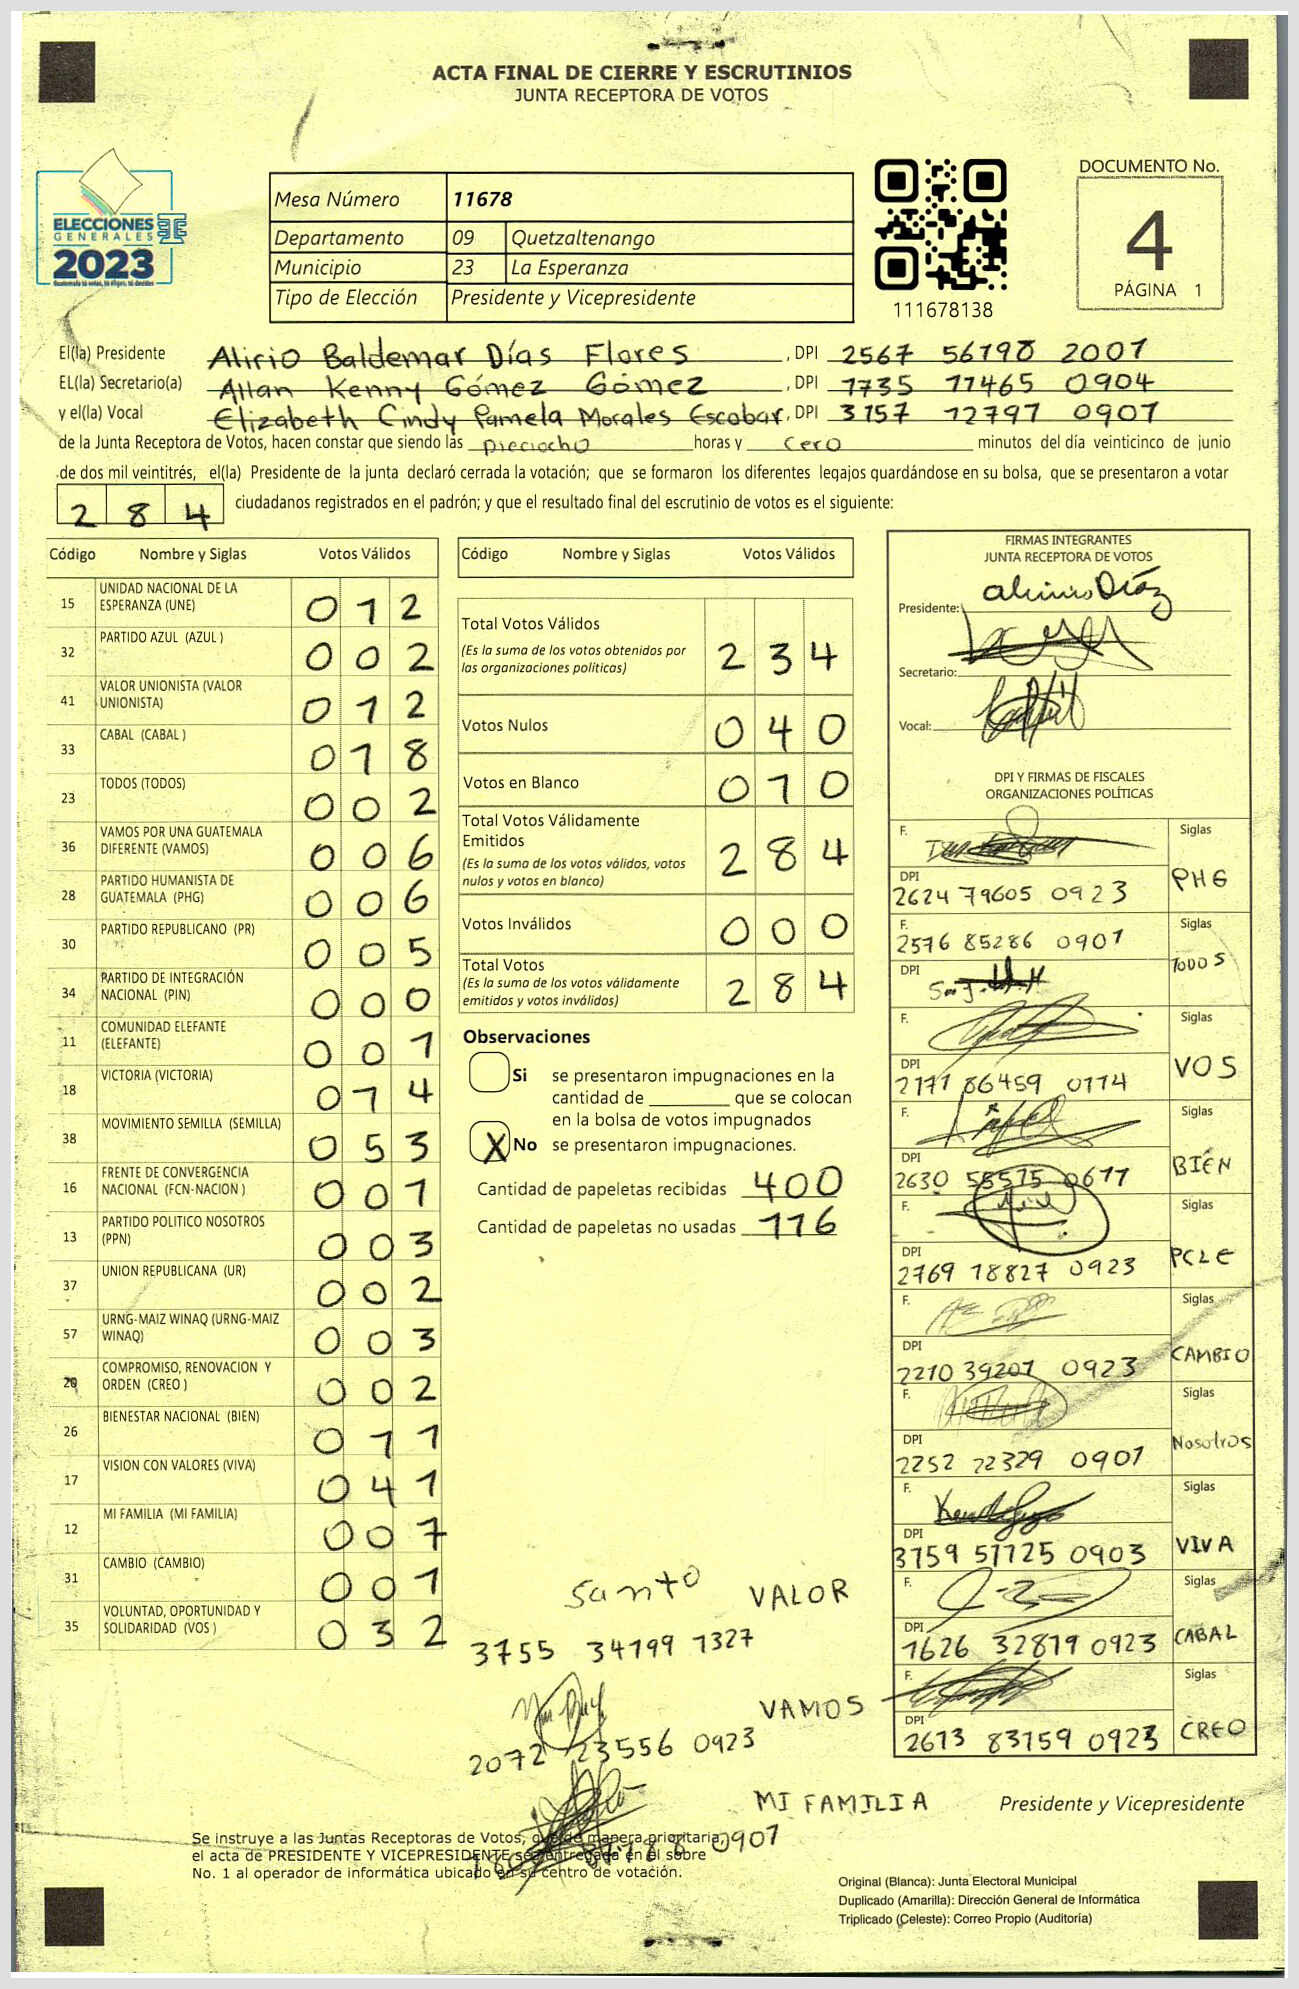 ACTA FINAL DE CIERRE Y ESCRUTINIOS
JUNTA RECEPTORA DE VOTOS
ELECCIONES
GENERALES
2023
Guatemala tú votas, tú eliges, tú decides
Mesa Número 11678
Departamento 09 Quetzaltenango
Municipio 23 La Esperanza
Tipo de Elección Presidente y Vicepresidente
111678138
DOCUMENTO No.
4
PÁGINA 1
El(la) Presidente Alirio Baldemar Días Flores, DPI 2567 56198 2001
EL(la) Secretario(a) Allan Kenny Gómez Gómez, DPI 1735 11465 0904
y el(la) Vocal Elizabeth Cindy Pamela Morales Escobar, DPI 3157 12797 0901
de la Junta Receptora de Votos, hacen constar que siendo las Dieciocho horas y cero minutos del día veinticinco de junio
de dos mil veintitrés, el(la) Presidente de la junta declaró cerrada la votación; que se formaron los diferentes legajos guardándose en su bolsa, que se presentaron a votar
284 ciudadanos registrados en el padrón; y que el resultado final del escrutinio de votos es el siguiente:
Código Nombre y Siglas Votos Válidos
15 UNIDAD NACIONAL DE LA ESPERANZA (UNE) 012
32 PARTIDO AZUL (AZUL ) 002
41 VALOR UNIONISTA (VALOR UNIONISTA) 012
33 CABAL (CABAL ) 018
23 TODOS (TODOS) 002
36 VAMOS POR UNA GUATEMALA DIFERENTE (VAMOS) 006
28 PARTIDO HUMANISTA DE GUATEMALA (PHG) 006
30 PARTIDO REPUBLICANO (PR) 005
34 PARTIDO DE INTEGRACIÓN NACIONAL (PIN) 000
11 COMUNIDAD ELEFANTE (ELEFANTE) 001
18 VICTORIA (VICTORIA) 014
38 MOVIMIENTO SEMILLA (SEMILLA) 053
16 FRENTE DE CONVERGENCIA NACIONAL (FCN-NACION ) 001
13 PARTIDO POLITICO NOSOTROS (PPN) 003
37 UNION REPUBLICANA (UR) 002
57 URNG-MAIZ WINAQ (URNG-MAIZ WINAQ) 003
20 COMPROMISO, RENOVACION Y ORDEN (CREO ) 002
26 BIENESTAR NACIONAL (BIEN) 011
17 VISION CON VALORES (VIVA) 041
12 MI FAMILIA (MI FAMILIA) 007
31 CAMBIO (CAMBIO) 001
35 VOLUNTAD, OPORTUNIDAD Y SOLIDARIDAD (VOS ) 032
Código Nombre y Siglas Votos Válidos
Total Votos Válidos 234
(Es la suma de los votos obtenidos por
las organizaciones politicas)
Votos Nulos 040
Votos en Blanco 010
Total Votos Válidamente
Emitidos 284
(Es la suma de los votos válidos, votos
nulos y votos en blanco)
Votos Inválidos 000
Total Votos 284
(Es la suma de los votos válidamente
emitidos y votos inválidos)
Observaciones
Si se presentaron impugnaciones en la
cantidad de ________ que se colocan
en la bolsa de votos impugnados
X No se presentaron impugnaciones.
Cantidad de papeletas recibidas 400
Cantidad de papeletas no usadas 116
Santo VALOR
3755 34199 1327
VAMOS
2072 23556 0923
MI FAMILIA
0901
FIRMAS INTEGRANTES
JUNTA RECEPTORA DE VOTOS
Presidente:
Secretario:
Vocal:
DPI Y FIRMAS DE FISCALES
ORGANIZACIONES POLÍTICAS
F. Siglas
DPI PHG
2624 79605 0923
F. Siglas
2576 85286 0901
DPI TODOS
F. Siglas
DPI VOS
2171 86459 0114
F. Siglas
DPI BIEN
2630 55575 0611
F. Siglas
DPI PCLE
2769 18827 0923
F. Siglas
DPI CAMBIO
2210 39201 0923
F. Siglas
DPI Nosotros
2252 22329 0901
F. Siglas
DPI VIVA
3159 51725 0903
F. Siglas
DPI CABAL
1626 32819 0923
F. Siglas
DPI CREO
2613 83159 0923
Presidente y Vicepresidente
Se instruye a las Juntas Receptoras de Votos, que de manera prioritaria,
el acta de PRESIDENTE Y VICEPRESIDENTE sea entregada en el sobre
No. 1 al operador de informática ubicado en su centro de votación.
Original (Blanca): Junta Electoral Municipal
Duplicado (Amarilla): Dirección General de Informática
Triplicado (Celeste): Correo Propio (Auditoría)